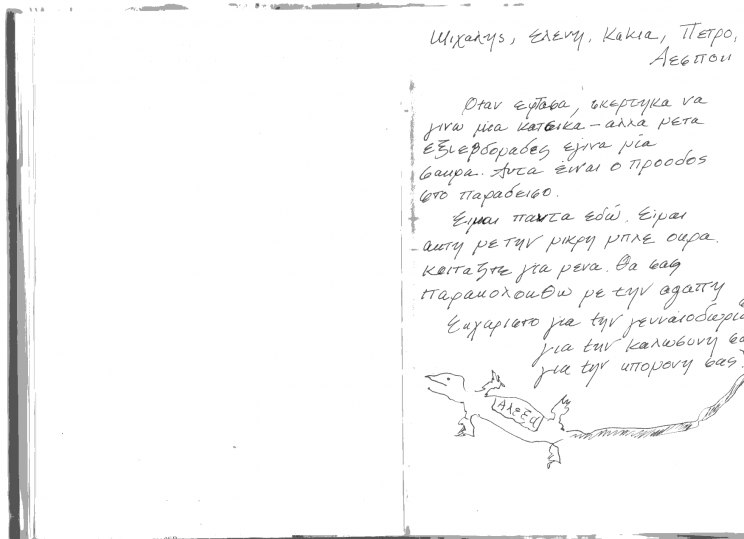 Μιχαλης, Ελενη, Κακια, Πετρο,
Δεσποι
Οταν εφτασα, σκερτηκα να
γινω μια κατσικα – αλλα μετα
εξι εβδομαδες εγινα μια
σαυρα. Αυτα ειναι ο προοδος
στο παραδεισο.
Ειμαι παντα εδώ. Ειμαι
αυτη με την μικρη μπλε ουρα.
Κοιταξτε για μενα. Θα σας
παρακολουθω με την αγαπη
Ευχαριστο για την γενναιοδωρια
για την καλωσυνη σα
για την υπομονη σας.
Αλεξη